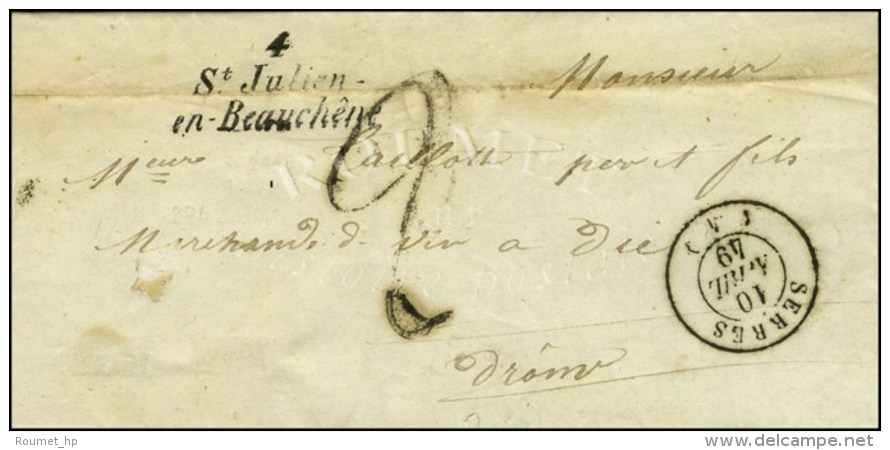 4
St Julien-
en-Beauchêne
Monsieur
Mieure Taillott per et fils
Marchands de vin a Die
Drôme
2
SERRES
10
AVRIL
49
ROUMET
Roumet_hp
delcampe.net